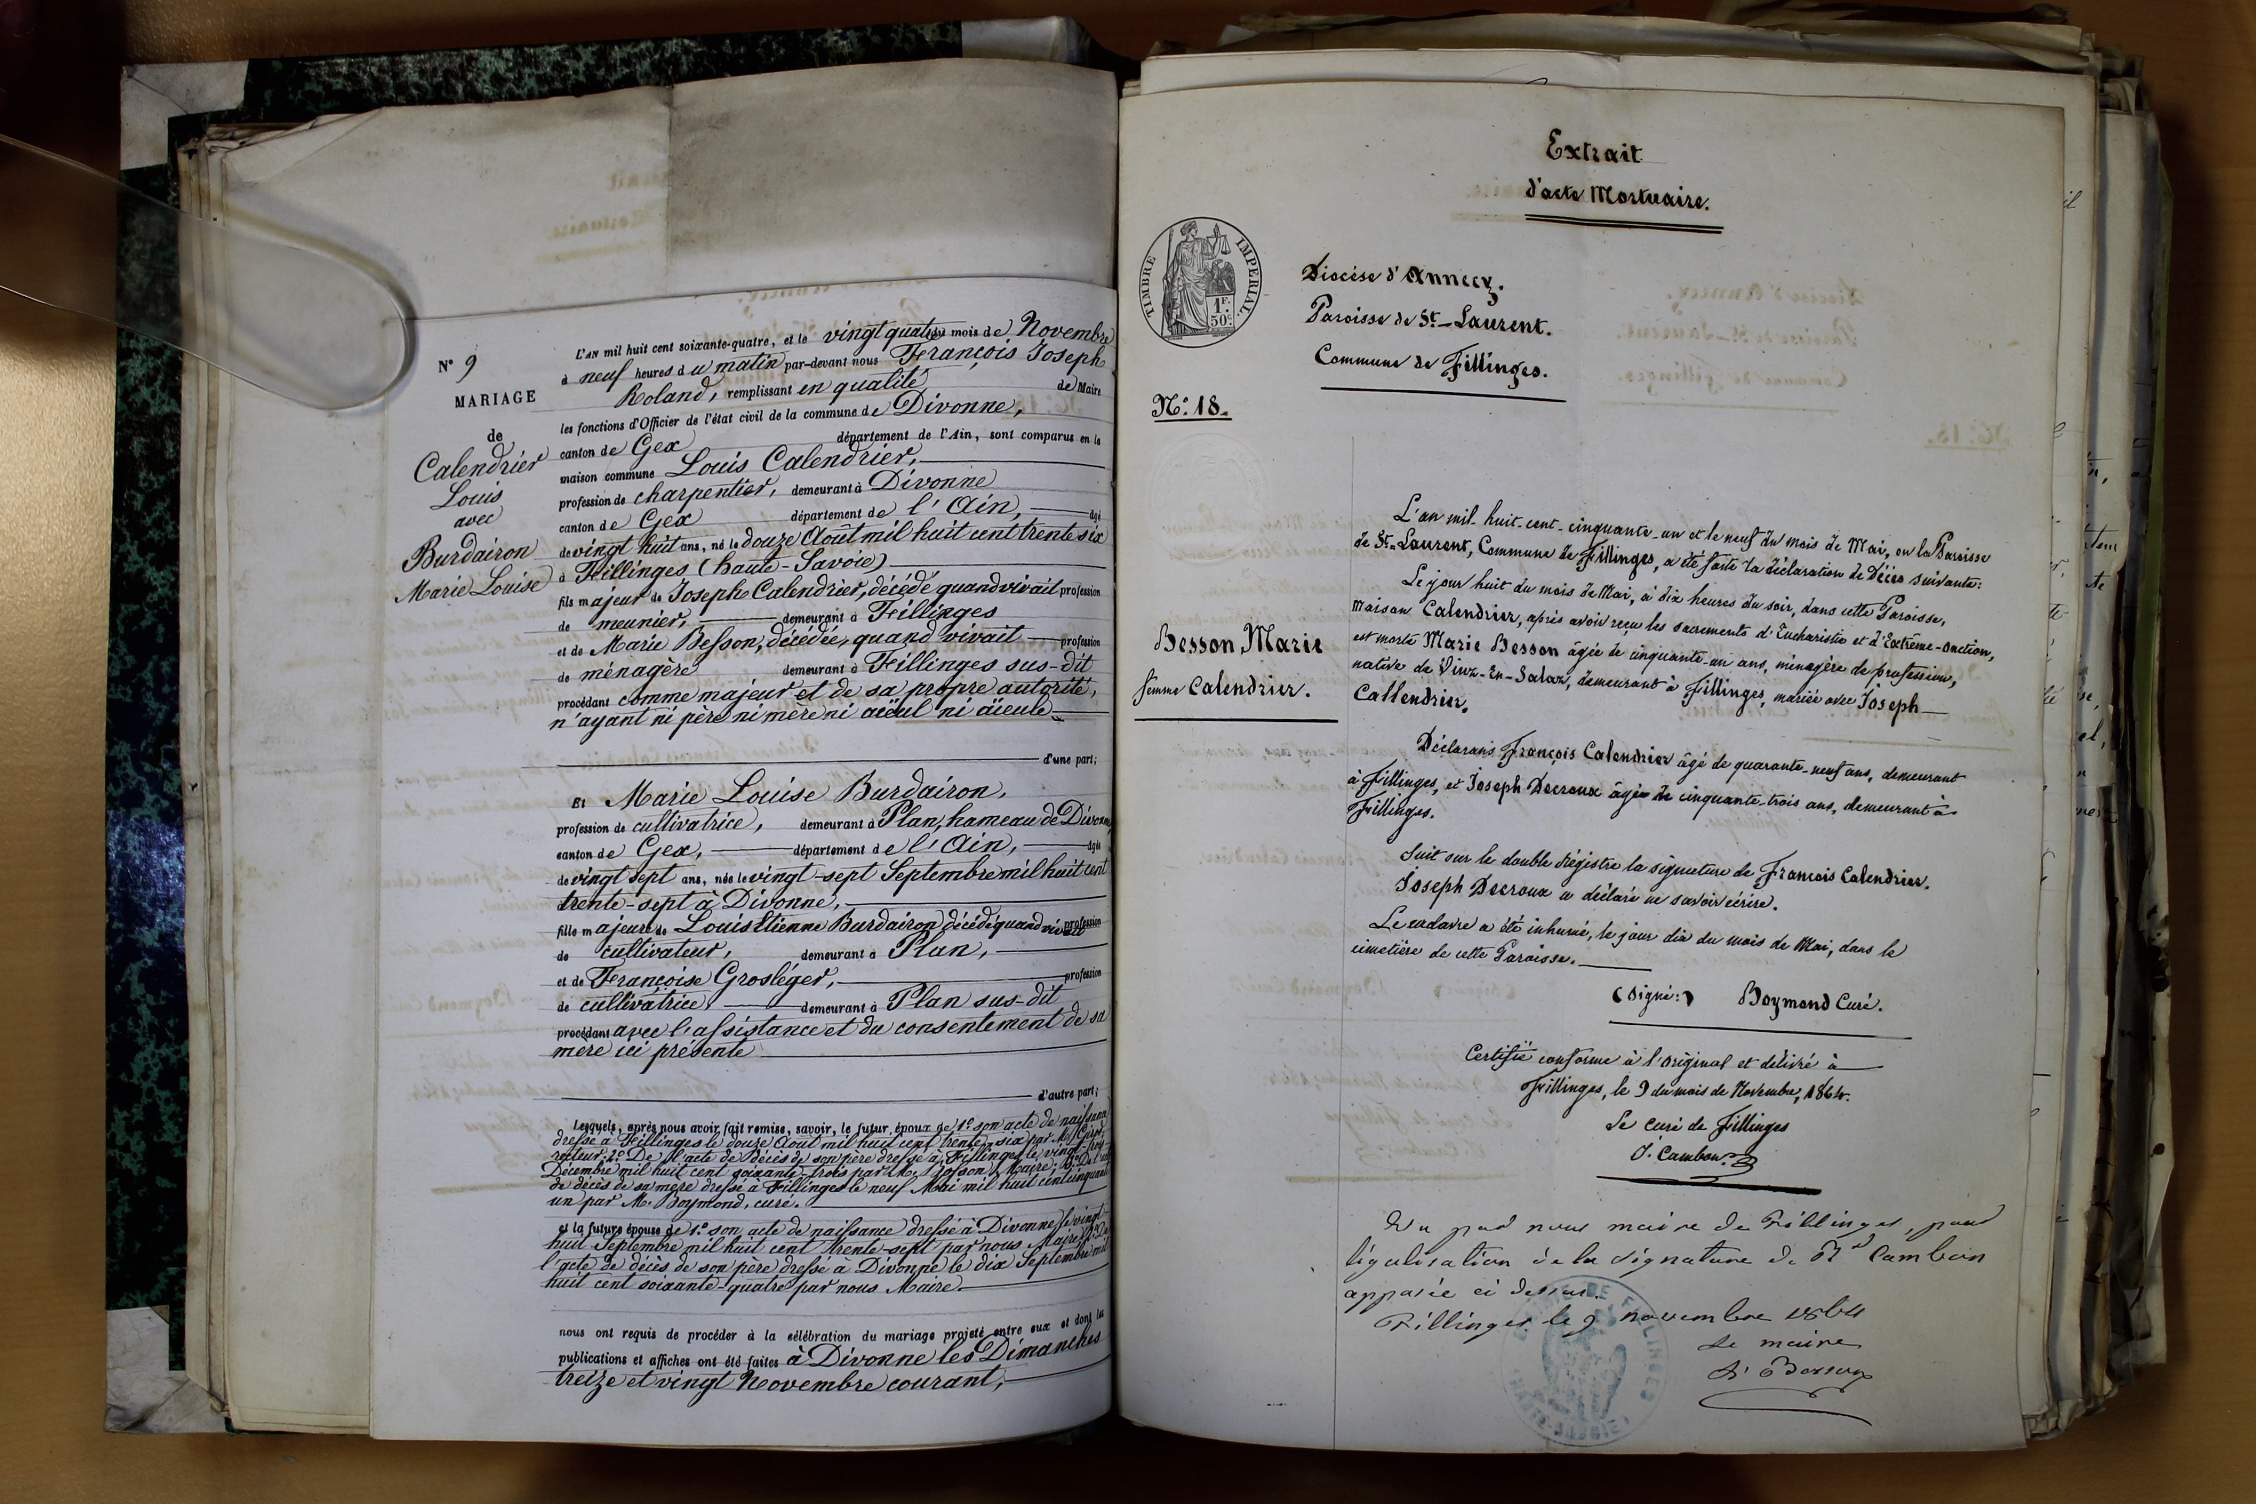 N° 9
MARIAGE
de
Calendrier
Louis
avec
Burdairon
Marie Louise
L'AN mil huit cent soixante-quatre, et le vingt quatre du mois de Novembre
à neuf heures du matin par-devant nous François Joseph
Roland, remplissant en qualité de Maire
les fonctions d'Officier de l'état civil de la commune de Divonne,
canton de Gex département de l'Ain, sont comparus en la
maison commune Louis Calendrier,
profession de charpentier, demeurant à Divonne
canton de Gex département de l'Ain, âgé
de vingt huit ans, né le douze Août mil huit cent trente six
à Fillinges (haute-Savoie)
fils majeur de Joseph Calendrier, décédé quand vivait profession
de meunier, demeurant à Fillinges
et de Marie Besson, décédée, quand vivait profession
de ménagère demeurant à Fillinges sus-dit
procédant comme majeur et de sa propre autorité,
n'ayant ni père ni mère ni aïeul ni aïeule
d'une part;
Et Marie Louise Burdairon,
profession de cultivatrice, demeurant à Plan, hameau de Divonne,
canton de Gex, département de l'Ain, âgée
de vingt sept ans, née le vingt-sept Septembre mil huit cent
trente-sept à Divonne,
fille majeure de Louis Etienne Burdairon décédé quand vivait profession
de cultivateur, demeurant à Plan,
et de Françoise Grosléger, profession
de cultivatrice demeurant à Plan sus-dit
procédant avec l'assistance et du consentement de sa
mère ici présente
d'autre part;
Lesquels, après nous avoir fait remise, savoir, le futur époux de 1° son acte de naissance
dressé à Fillinges le douze Août mil huit cent trente-six par M.
recteur; 2° De l'acte de décès de son père dressé à Fillinges le vingt
Décembre mil huit cent soixante-trois par M. Maire; 3° De l'acte
de décès de sa mère dressé à Fillinges le neuf Mai mil huit cent cinquante
un par M. Boymond, curé.
et la future épouse de 1° son acte de naissance dressé à Divonne le vingt-
huit Septembre mil huit cent trente-sept par nous Maire; 2° De
l'acte de décès de son père dressé à Divonne le dix Septembre mil
huit cent soixante-quatre par nous Maire.
nous ont requis de procéder à la célébration du mariage projeté entre eux et dont les
publications et affiches ont été faites à Divonne les Dimanches
treize et vingt Novembre courant,
Extrait
d'acte Mortuaire.
TIMBRE IMPERIAL
1F. 50c.
Diocèse d'Annecy.
Paroisse de St-Laurent.
Commune de Fillinges.
N°. 18.
Besson Marie
femme Calendrier.
L'an mil-huit-cent-cinquante-un et le neuf du mois de Mai, en la Paroisse
de St-Laurent, Commune de Fillinges, a été faite la déclaration de Décès suivante:
Le jour huit du mois de Mai, à dix heures du soir, dans cette Paroisse,
maison Calendrier, après avoir reçu les sacrements d'Eucharistie et d'Extrême-Onction,
est morte Marie Besson âgée de cinquante-un ans, ménagère de profession,
native de Viuz-En-Salaz, demeurant à Fillinges, mariée avec Joseph
Callendrier.
Déclarans François Calendrier âgé de quarante-neuf ans, demeurant
à Fillinges, et Joseph Decroux âgé de cinquante-trois ans, demeurant à
Fillinges.
Suit sur le double Régistre la signature de François Calendrier.
Joseph Decroux a déclaré ne savoir écrire.
Le cadavre a été inhumé, le jour dix du mois de Mai, dans le
cimetière de cette Paroisse.
(Signé:) Boymond Curé.
Certifié conforme à l'original et délivré à
Fillinges, le 9 du mois de Novembre, 1864.
Le curé de Fillinges
J. Cambon.
Vu par nous maire de Fillinges, pour
légalisation de la signature de Rd Cambon
apposée ci dessus.
Fillinges le 9 novembre 1864
Le maire